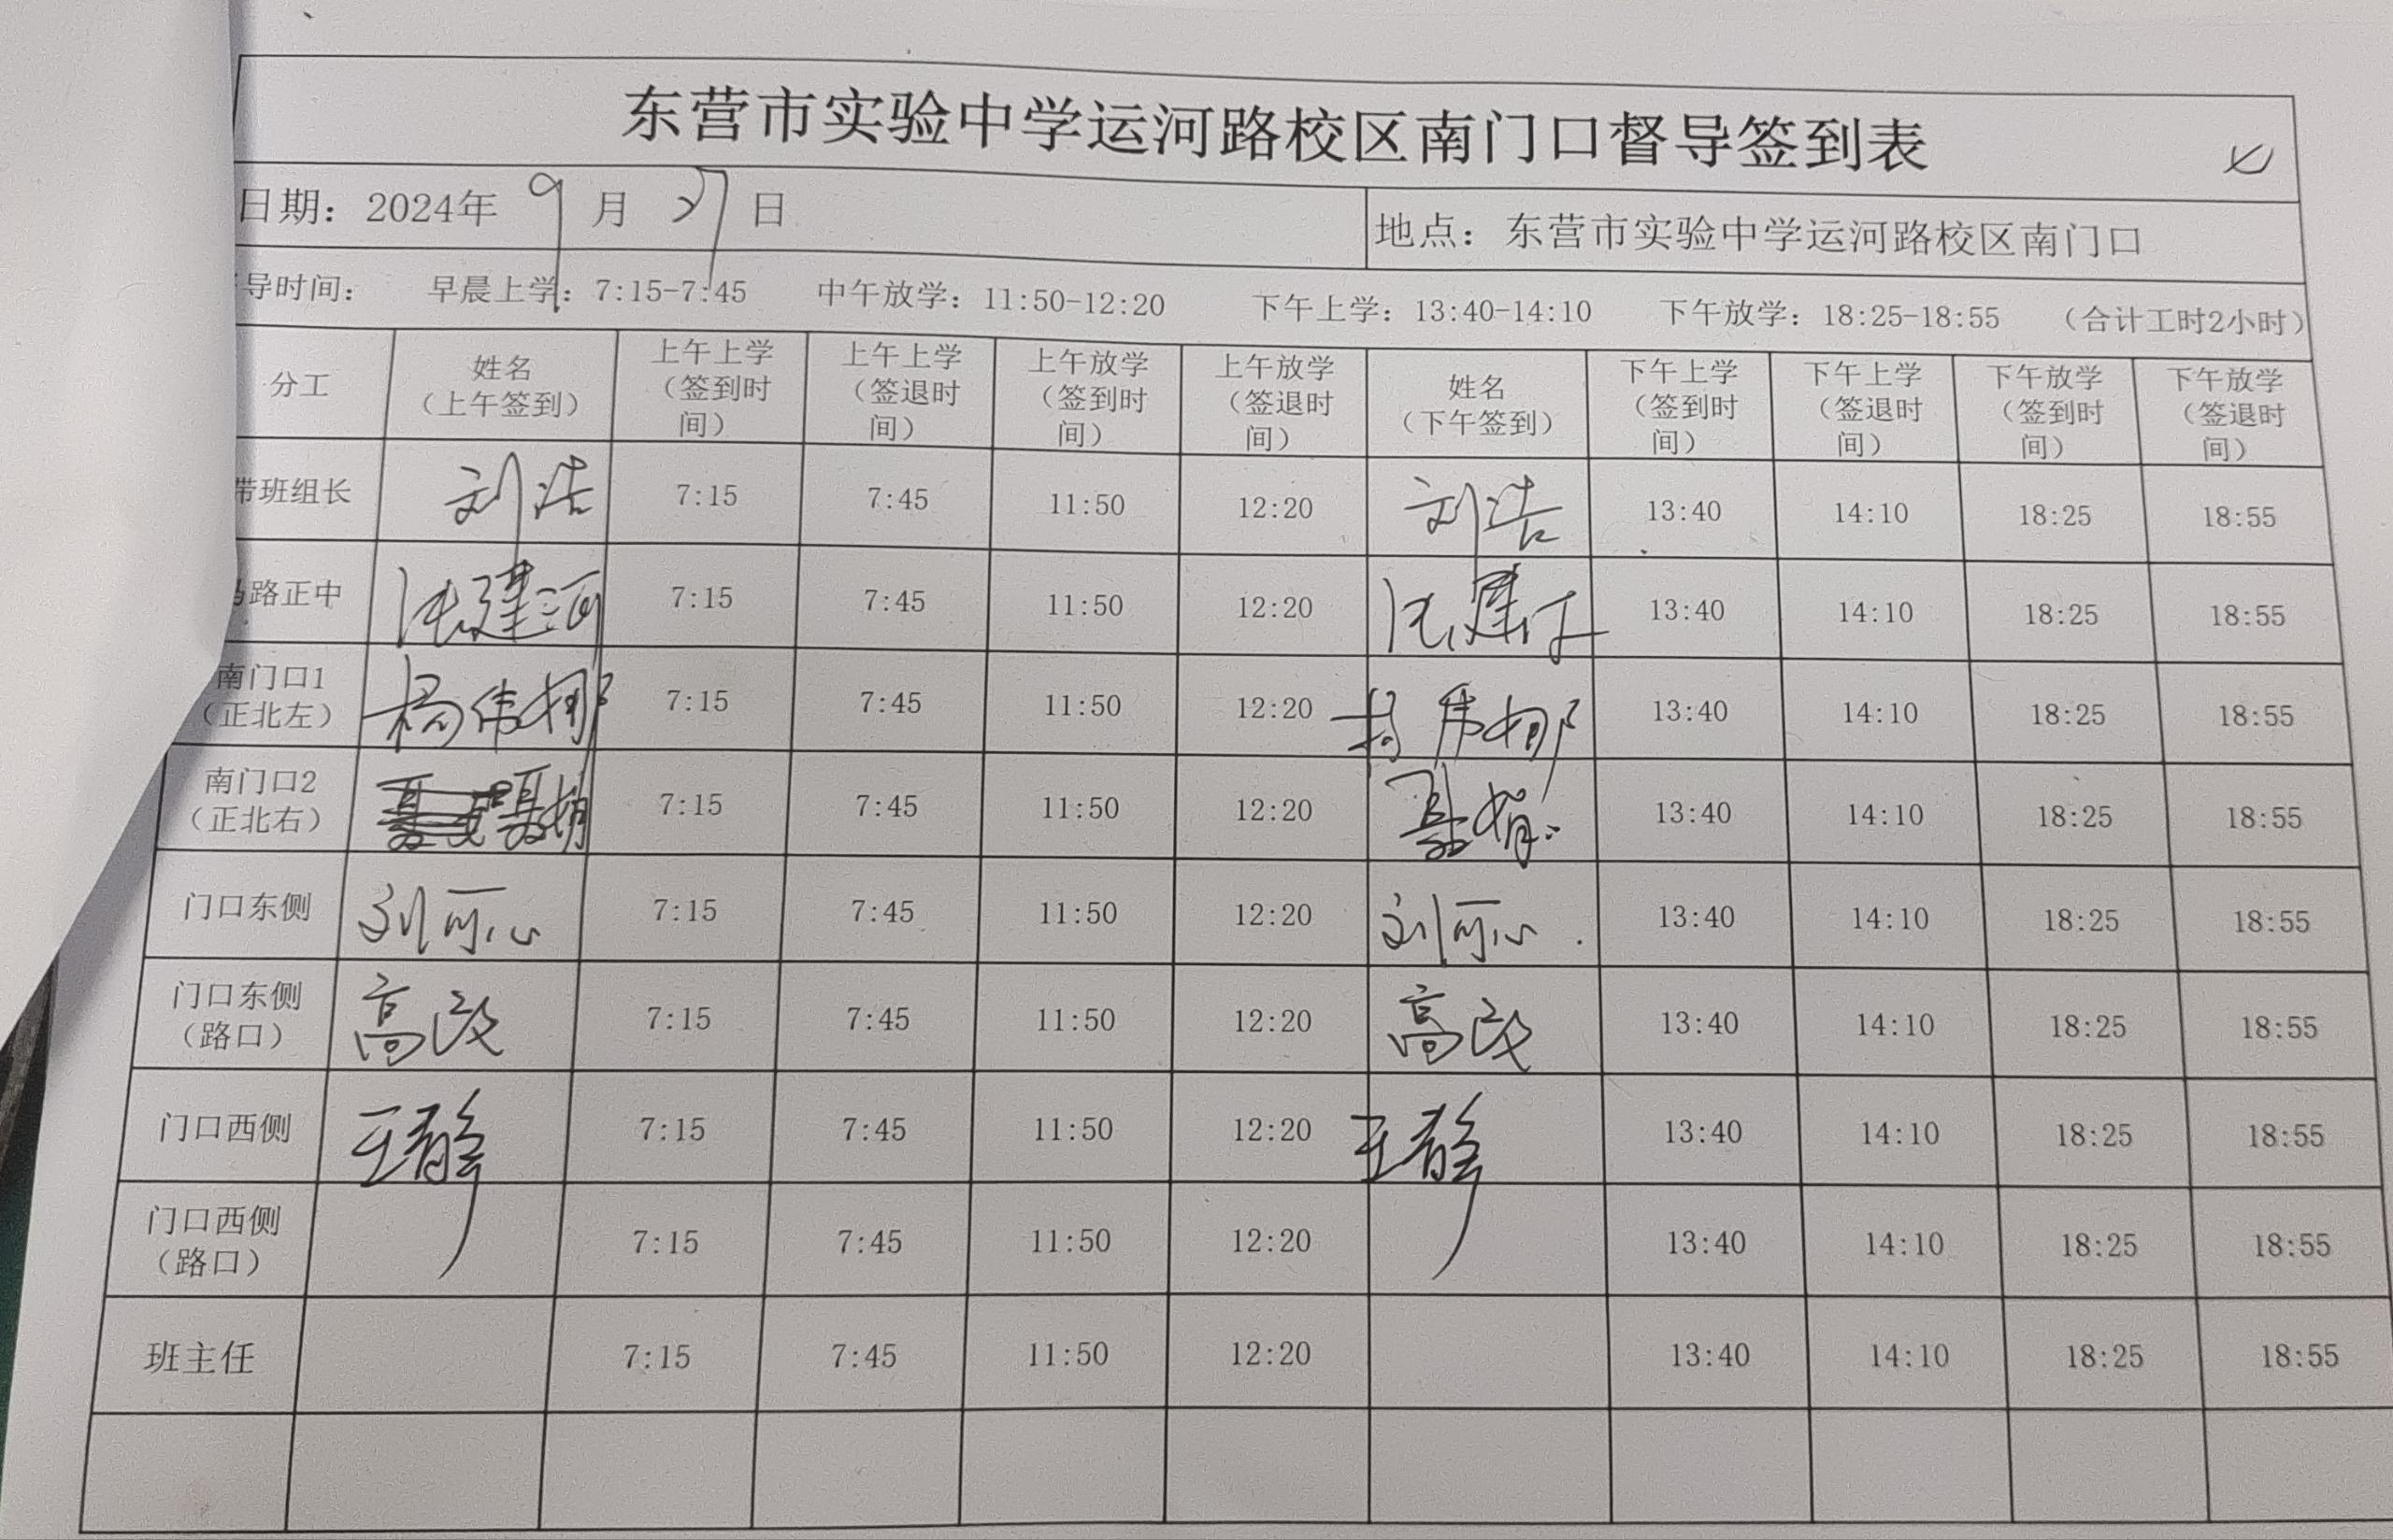 东营市实验中学运河路校区南门口督导签到表
日期：2024年 9 月 27 日 地点：东营市实验中学运河路校区南门口
导时间： 早晨上学：7:15-7:45 中午放学：11:50-12:20 下午上学：13:40-14:10 下午放学：18:25-18:55 （合计工时2小时）
分工 姓名（上午签到） 上午上学（签到时间） 上午上学（签退时间） 上午放学（签到时间） 上午放学（签退时间） 姓名（下午签到） 下午上学（签到时间） 下午上学（签退时间） 下午放学（签到时间） 下午放学（签退时间）
带班组长 刘浩 7:15 7:45 11:50 12:20 刘浩 13:40 14:10 18:25 18:55
路正中 7:15 7:45 11:50 12:20 13:40 14:10 18:25 18:55
南门口1（正北左） 杨伟娜 7:15 7:45 11:50 12:20 杨伟娜 13:40 14:10 18:25 18:55
南门口2（正北右） 聂娟 7:15 7:45 11:50 12:20 聂娟 13:40 14:10 18:25 18:55
门口东侧 刘可心 7:15 7:45 11:50 12:20 刘可心 13:40 14:10 18:25 18:55
门口东侧（路口） 高 7:15 7:45 11:50 12:20 高 13:40 14:10 18:25 18:55
门口西侧 王静 7:15 7:45 11:50 12:20 王静 13:40 14:10 18:25 18:55
门口西侧（路口） 7:15 7:45 11:50 12:20 13:40 14:10 18:25 18:55
班主任 7:15 7:45 11:50 12:20 13:40 14:10 18:25 18:55